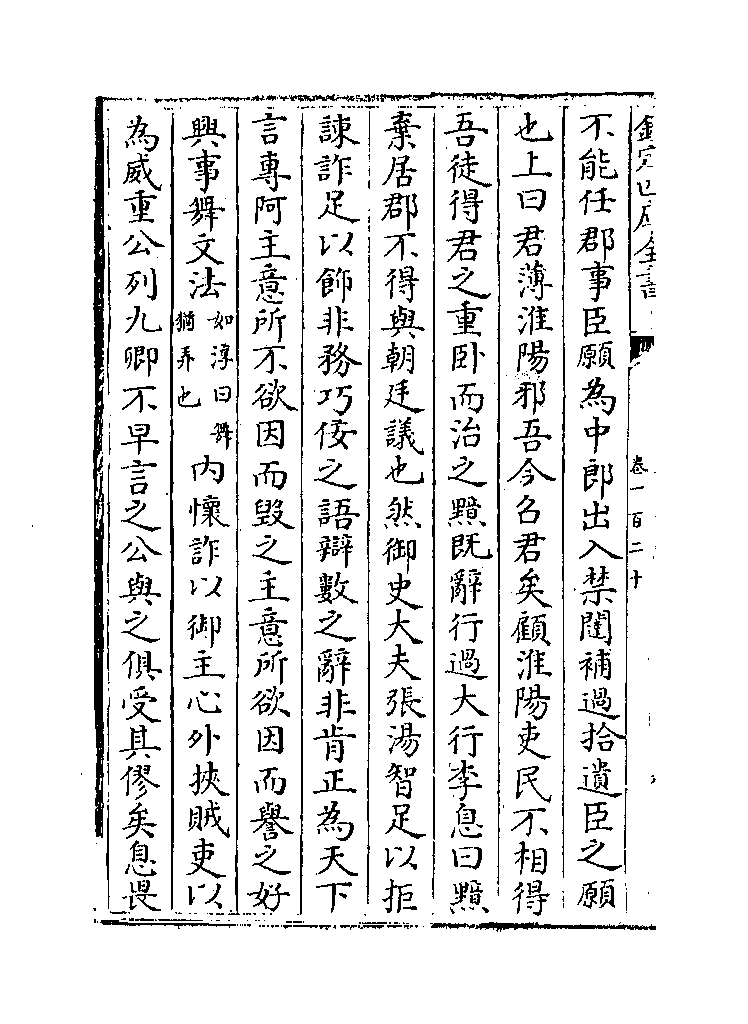 欽定四庫全書
卷一百二十
不能任郡事臣願為中郎出入禁闥補過拾遺臣之願
也上曰君薄淮陽邪吾今召君矣顧淮陽吏民不相得
吾徒得君之重卧而治之黯既辭行過大行李息曰黯
棄居郡不得與朝廷議也然御史大夫張湯智足以拒
諫詐足以飾非務巧佞之語辯數之辭非肯正為天下
言專阿主意所不欲因而毀之主意所欲因而譽之好
興事舞文法如淳曰舞猶弄也內懷詐以御主心外挾賊吏以
為威重公列九卿不早言之公與之俱受其僇矣息畏